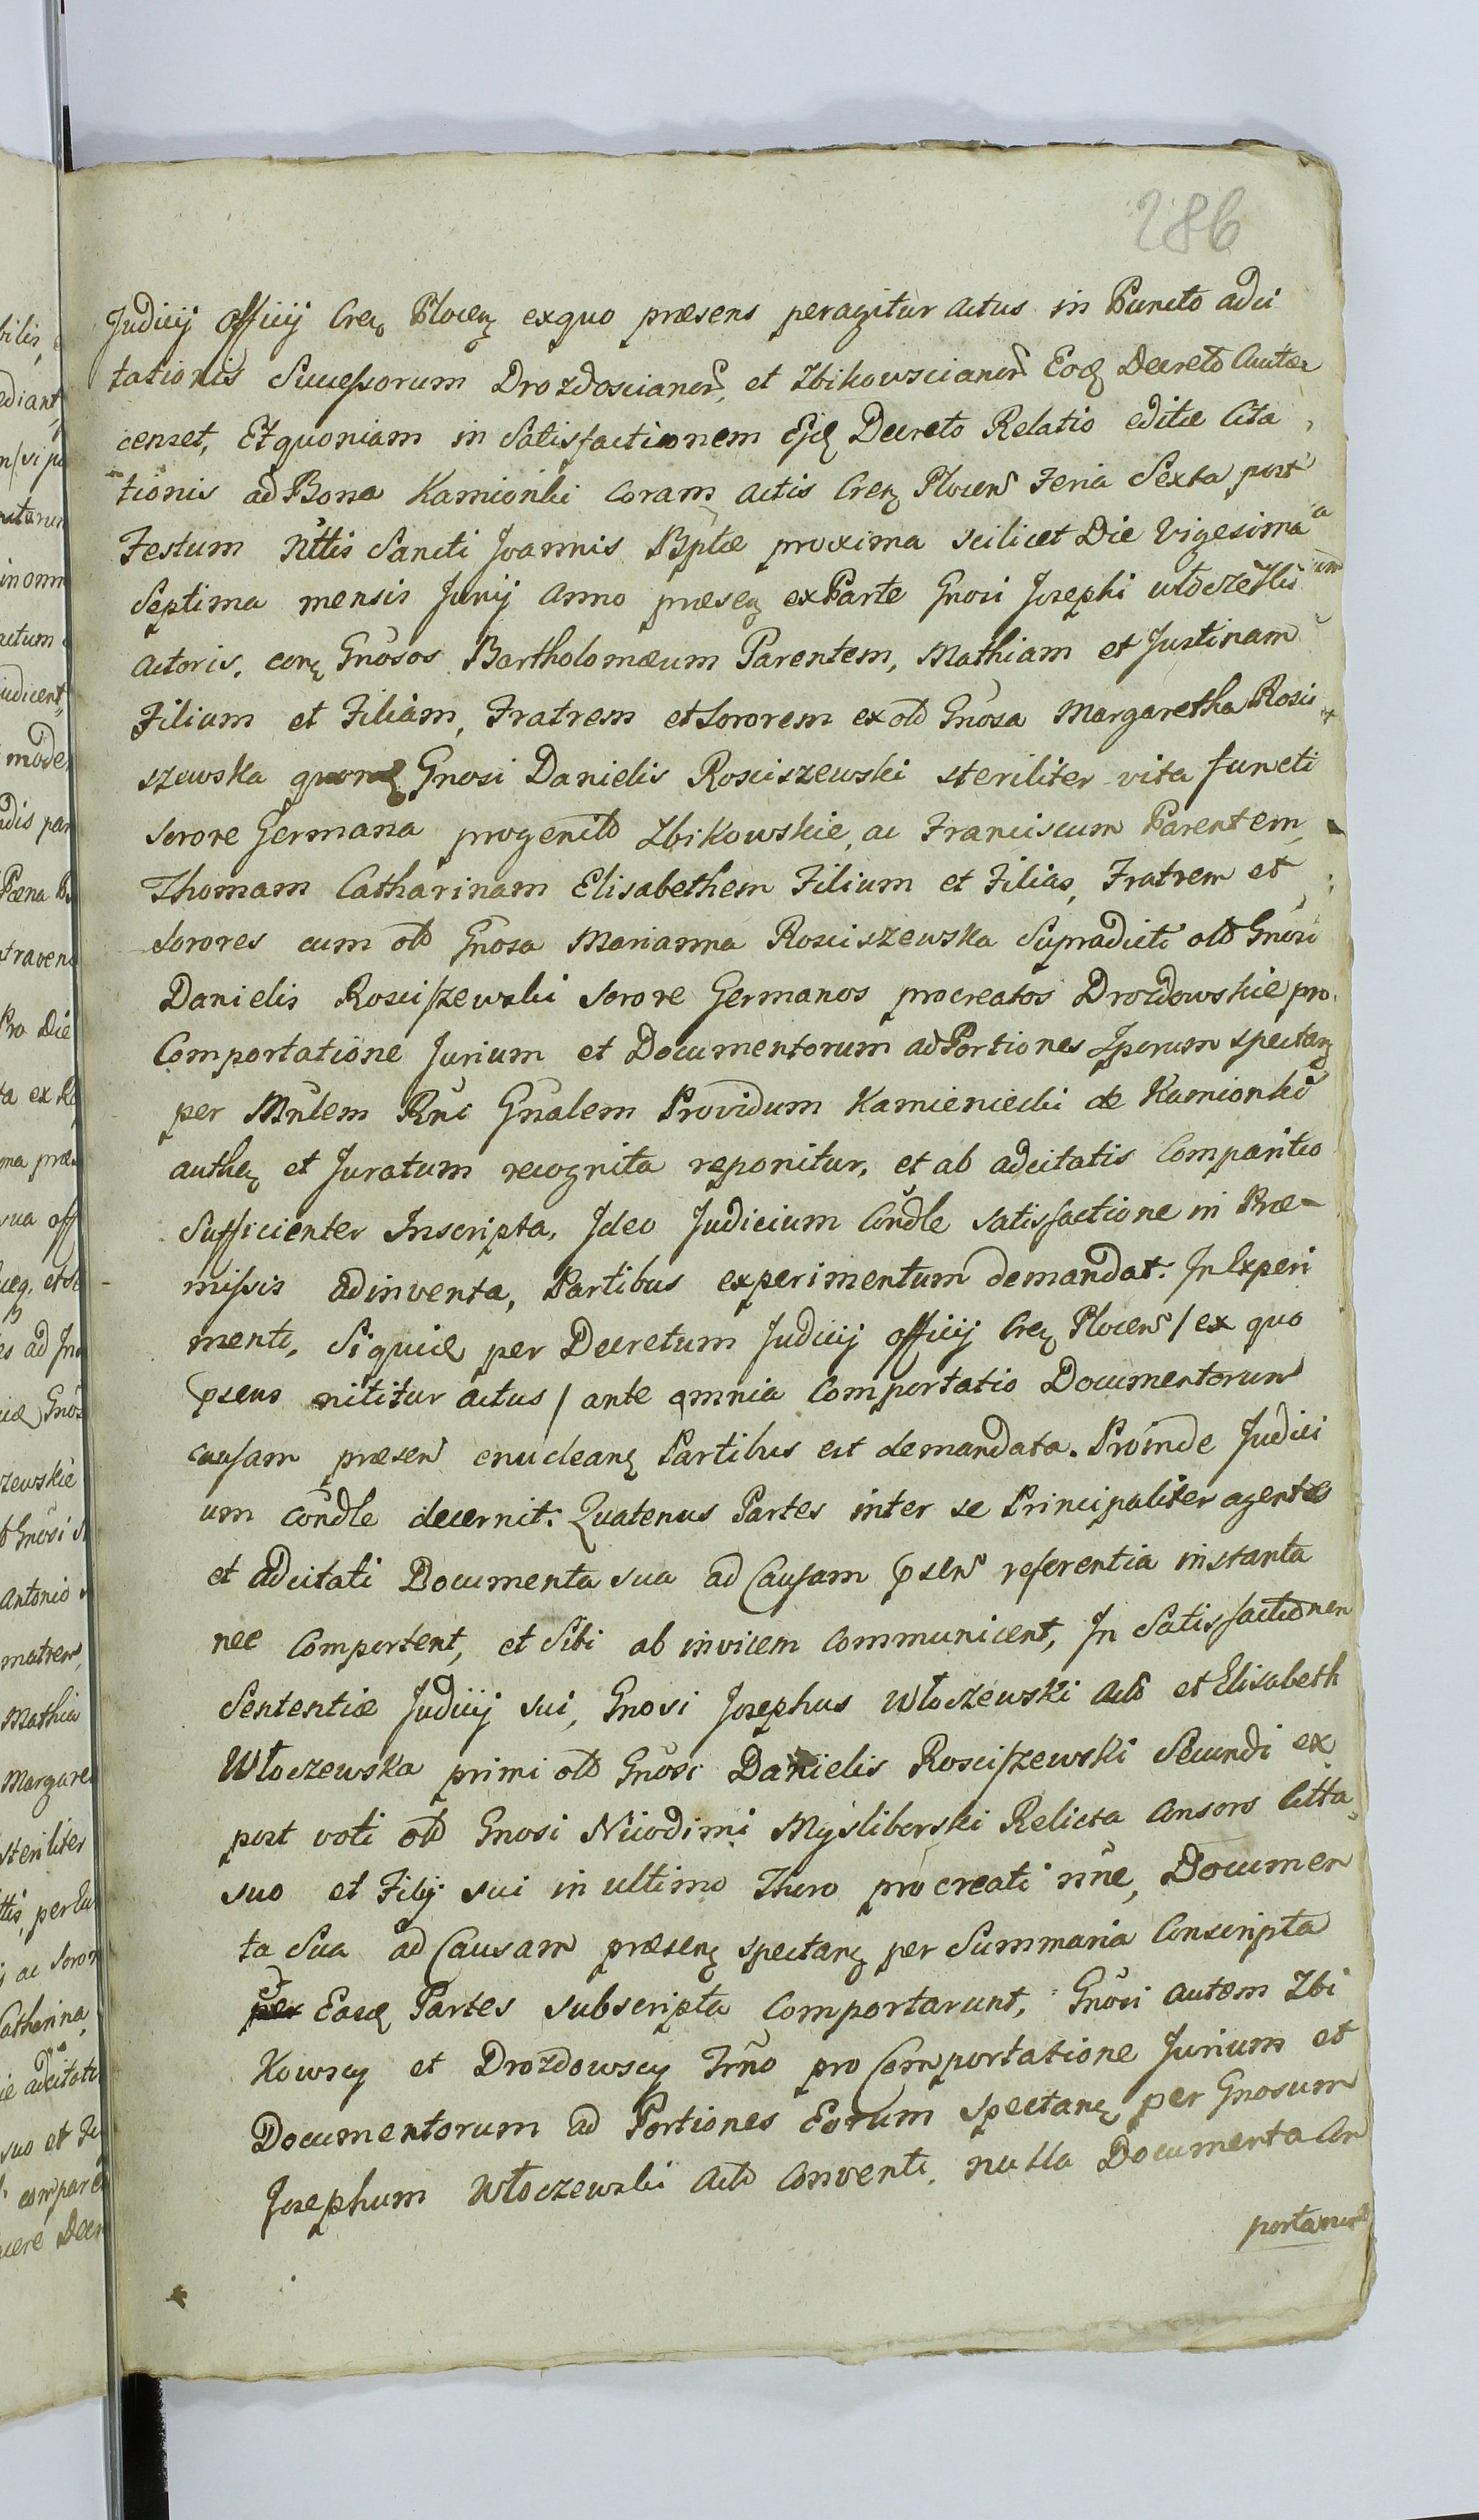 286
Judicij Officij Cren Plocen exquo præsens peragitur actus in Puncto adci
tationis Successorum Drozdoscianor, et Zbikowscianor Eod Decreto cautæ
censet, Et quoniam in Satisfactionem Ejd Decreto Relatio editæ Cita
tionis ad Bona Kamionki Coram actis Cren Plocen Feria Sexta post
Festum Nttis Sancti Joannis Bptæ proxima scilicet Die Vigesima
Septima mensis Junij Anno præsen ex Parte Gnosi Josephi
Actoris, con Gnosos Bartholomæum Parentem, Mathiam et Justinam
Filium et Filiam, Fratrem et Sororem ex olb Gnosa Margaretha Rosci
szewska quond Gnosi Danielis Rosciszewski steriliter vita functi
Sorore Germana progenitb Zbikowskie, ac Franciscum Parentem
Thomam Catharinam Elisabethem Filium et Filias, Fratrem et
Sorores cum olb Gnosa Marianna Rosciszewska Supradicti olb Gnosi
Danielis Rosciszewski Sorore Germanos procreatos Drozdowskie pro
Comportatione Jurium et Documentorum ad Portiones Ipsorum spectan
per Mnlem Rni Gnalem Providum Kamieniecki de Kamionki
authen et Juratum recognita reponitur, et ab adcitatis Comparitio
Sufficienter Inscripta, Ideo Judicium Condle satisfactione in Præ-
missis adinventa, Partibus experimentum demandat. In Experi
menti, Siquid per Decretum Judicij officij Cren Plocen / ex quo
psens nititur actus / ante omnia Comportatio Documentorum
causam præsen enuclean Partibus est demandata. Proinde Judici
um Condle decernit. Quatenus Partes inter se Principaliter agentes
et adcitati Documenta sua ad Causam psen referentia instanta
nee Comportent, et Sibi ab invicem communicent, In Satisfactionem
Sententiæ Judicij sui, Gnosi Josephus Włoczewski Acto et Elisabeth
Włoczewska primi olb Gnosi Danielis Rosciszewski Secundi ex
post voti olb Gnosi Nicodimi Mysliborski Relicta Consors Citta
suo et Filij sui in ultimo Thoro procreati nne, Documen
ta Sua ad Causam præsen spectan per Summaria Conscripta
per Easd Partes subscripta comportarunt, Gnosi autem Zbi
kowscy et Drozdowscy Trno pro Comportatione Jurium et
Documentorum ad Portiones Eorum spectan per Gnosum
Josephum Włoczewski Acto Conventi, nulla Documenta Com
portarunt